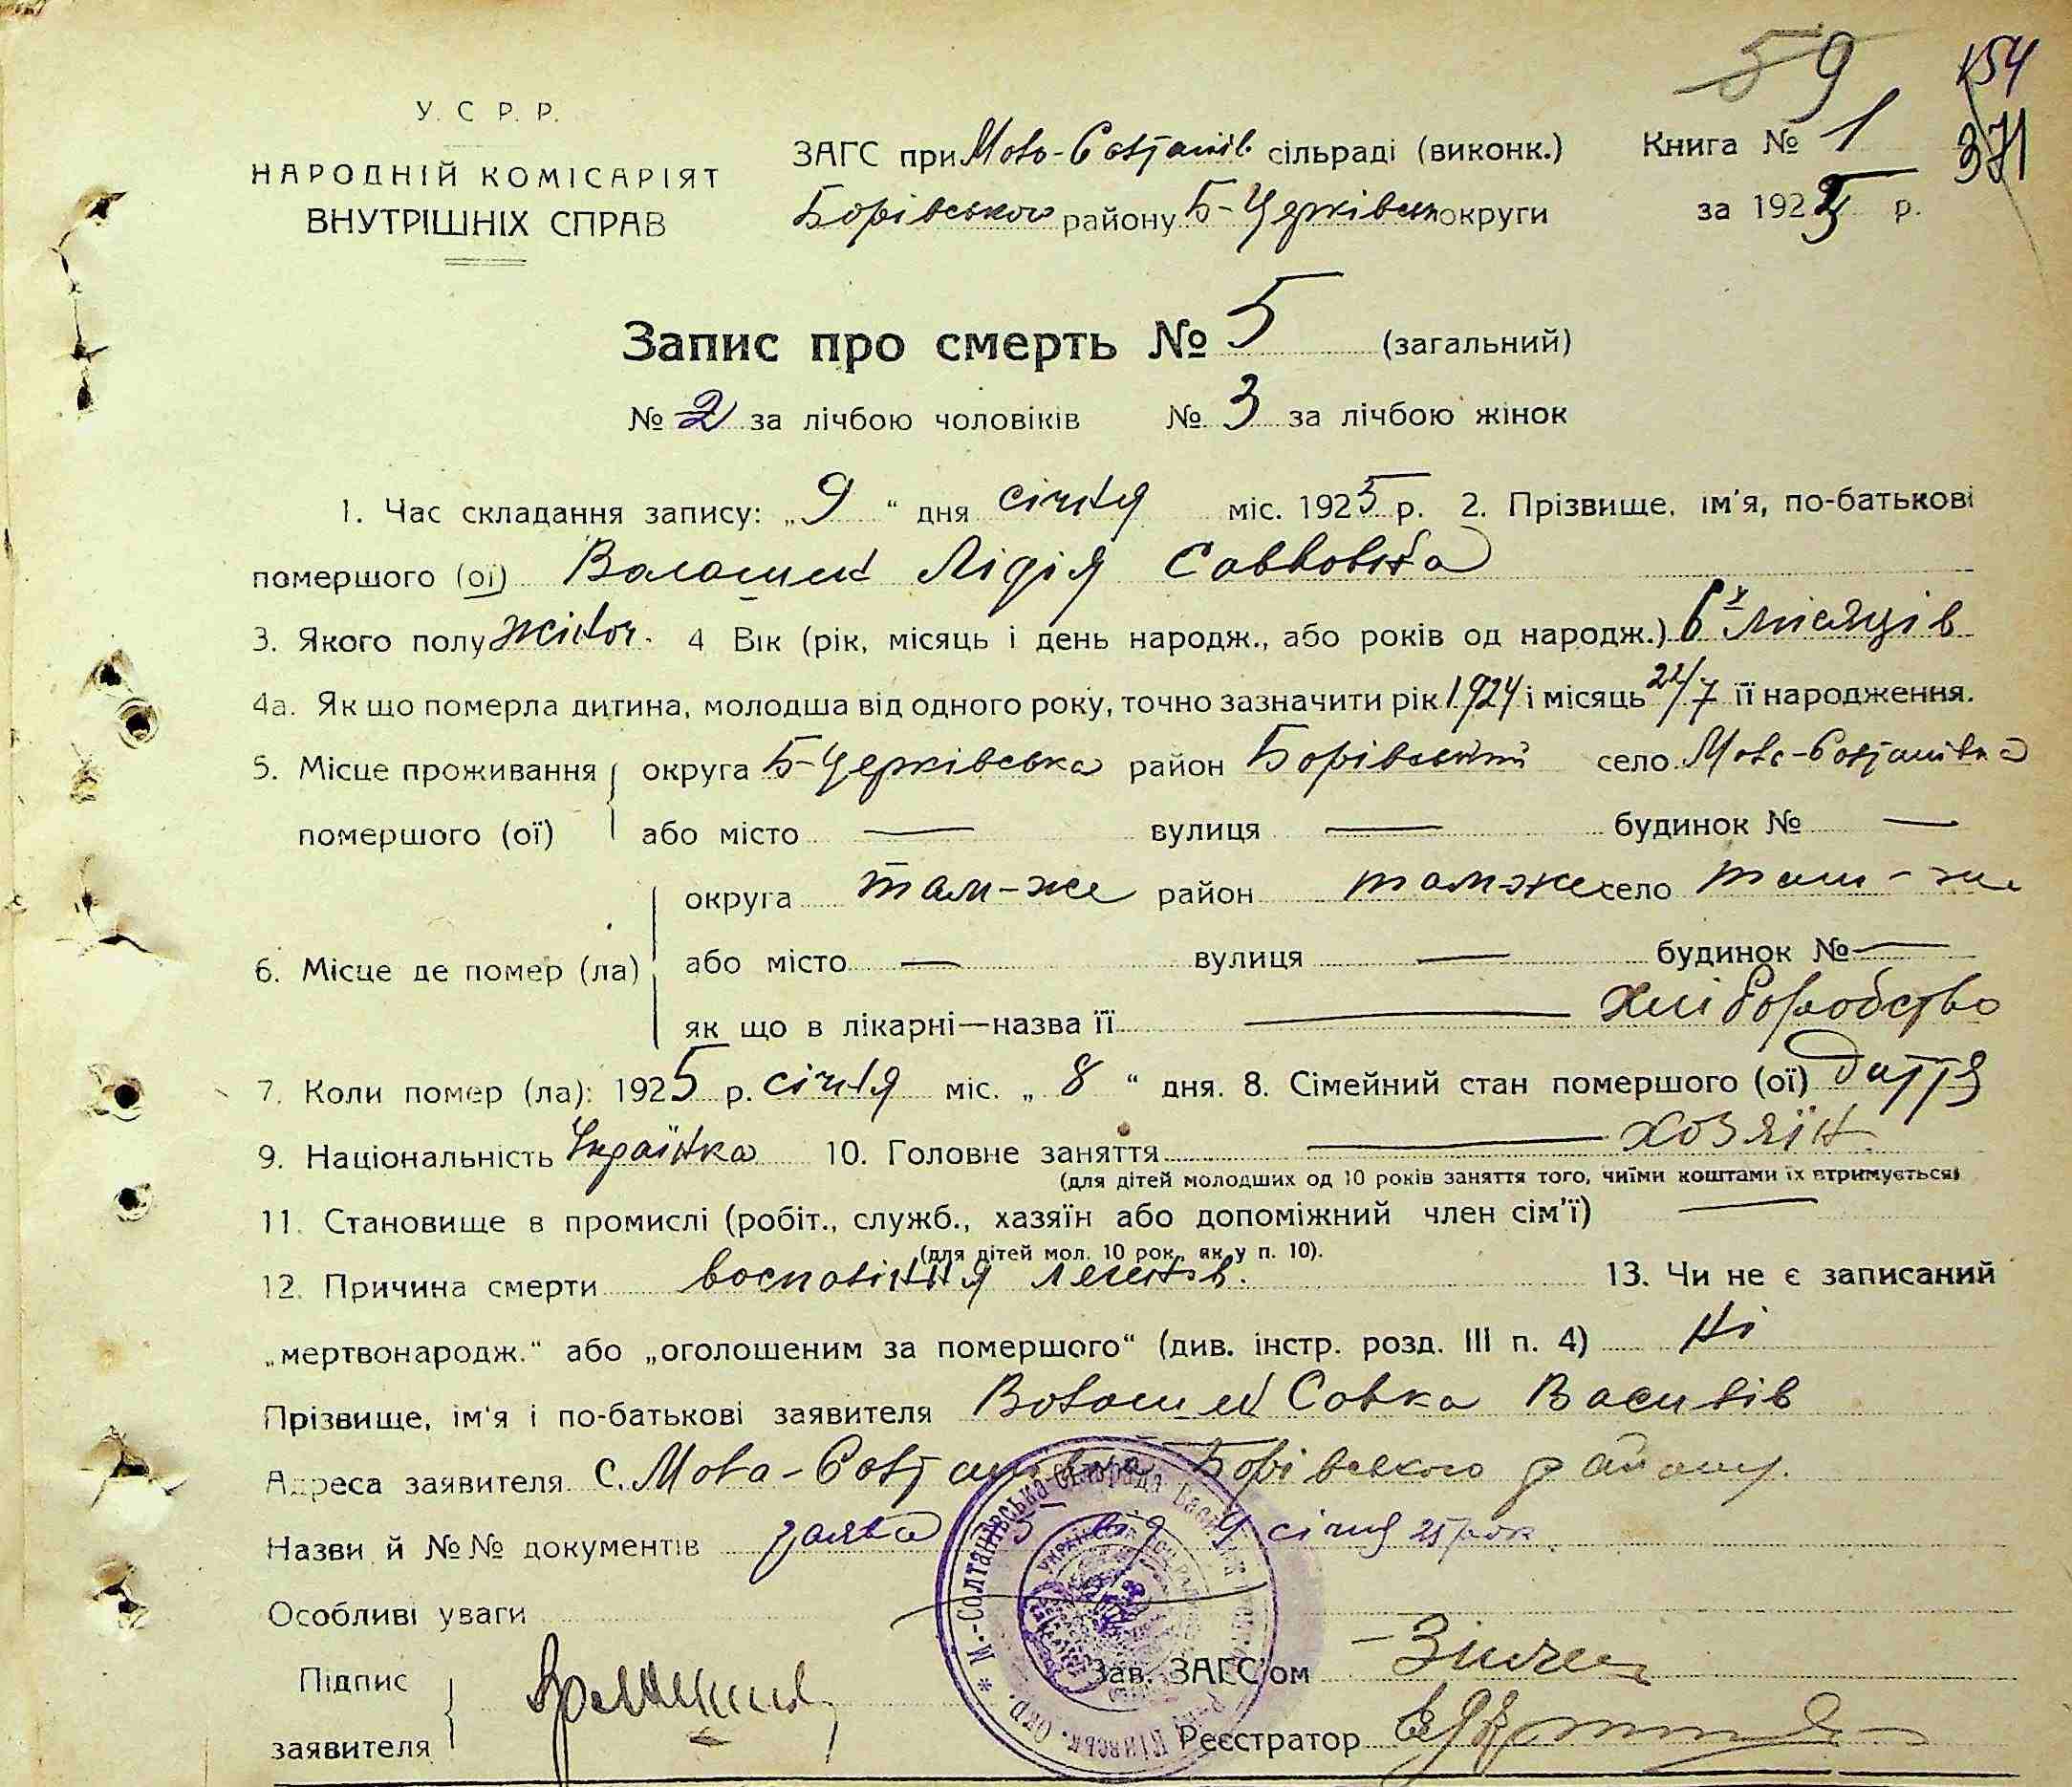 59 154
371
У. С Р. Р.
НАРОДНІЙ КОМІСАРІЯТ
ВНУТРІШНІХ СПРАВ
ЗАГС при Мото-Солтанів сільраді (виконк.) Книга № 1
Борівського району Б-Церківськ округи за 1925 р.
Запис про смерть № 5 (загальний)
№ 2 за лічбою чоловіків № 3 за лічбою жінок
1. Час складання запису: „9“ дня січня міс. 1925 р. 2. Прізвище, ім'я, по-батькові
помершого (ої) Волошин Лідія Савковна
3. Якого полу жіноч. 4 Вік (рік, місяць і день народж., або років од народж.) 6х місяців
4а. Як що померла дитина, молодша від одного року, точно зазначити рік 1924 і місяць 22/7 її народження.
5. Місце проживання округа Б-Церківська район Борівський село Мото-Солтанівка
помершого (ої) або місто — вулиця — будинок № —
округа там-же район там-же село там-же
6. Місце де помер (ла) або місто — вулиця — будинок № —
як що в лікарні—назва її — хліборобство
7. Коли помер (ла): 1925 р. січня міс. „8“ дня. 8. Сімейний стан помершого (ої) дитя
9. Національність Українка 10. Головне заняття — хозяїн
(для дітей молодших од 10 років заняття того, чиїми коштами їх втримується)
11. Становище в промислі (робіт., служб., хазяїн або допоміжний член сім'ї) —
(для дітей мол. 10 рок., як у п. 10).
12. Причина смерти воспалння легенів. 13. Чи не є записаний
„мертвонародж.“ або „оголошеним за помершого“ (див. інстр. розд. III п. 4) ні
Прізвище, ім'я і по-батькові заявителя Волошин Совка Василів
Адреса заявителя с. Мота-Солтанівка Борівського району.
Назви й №№ документів заява 5 від 9 січня 25 рок
Особливі уваги
Підпис Зав. ЗАГС'ом
заявителя Реєстратор
М.-Солтанівська Сільрада